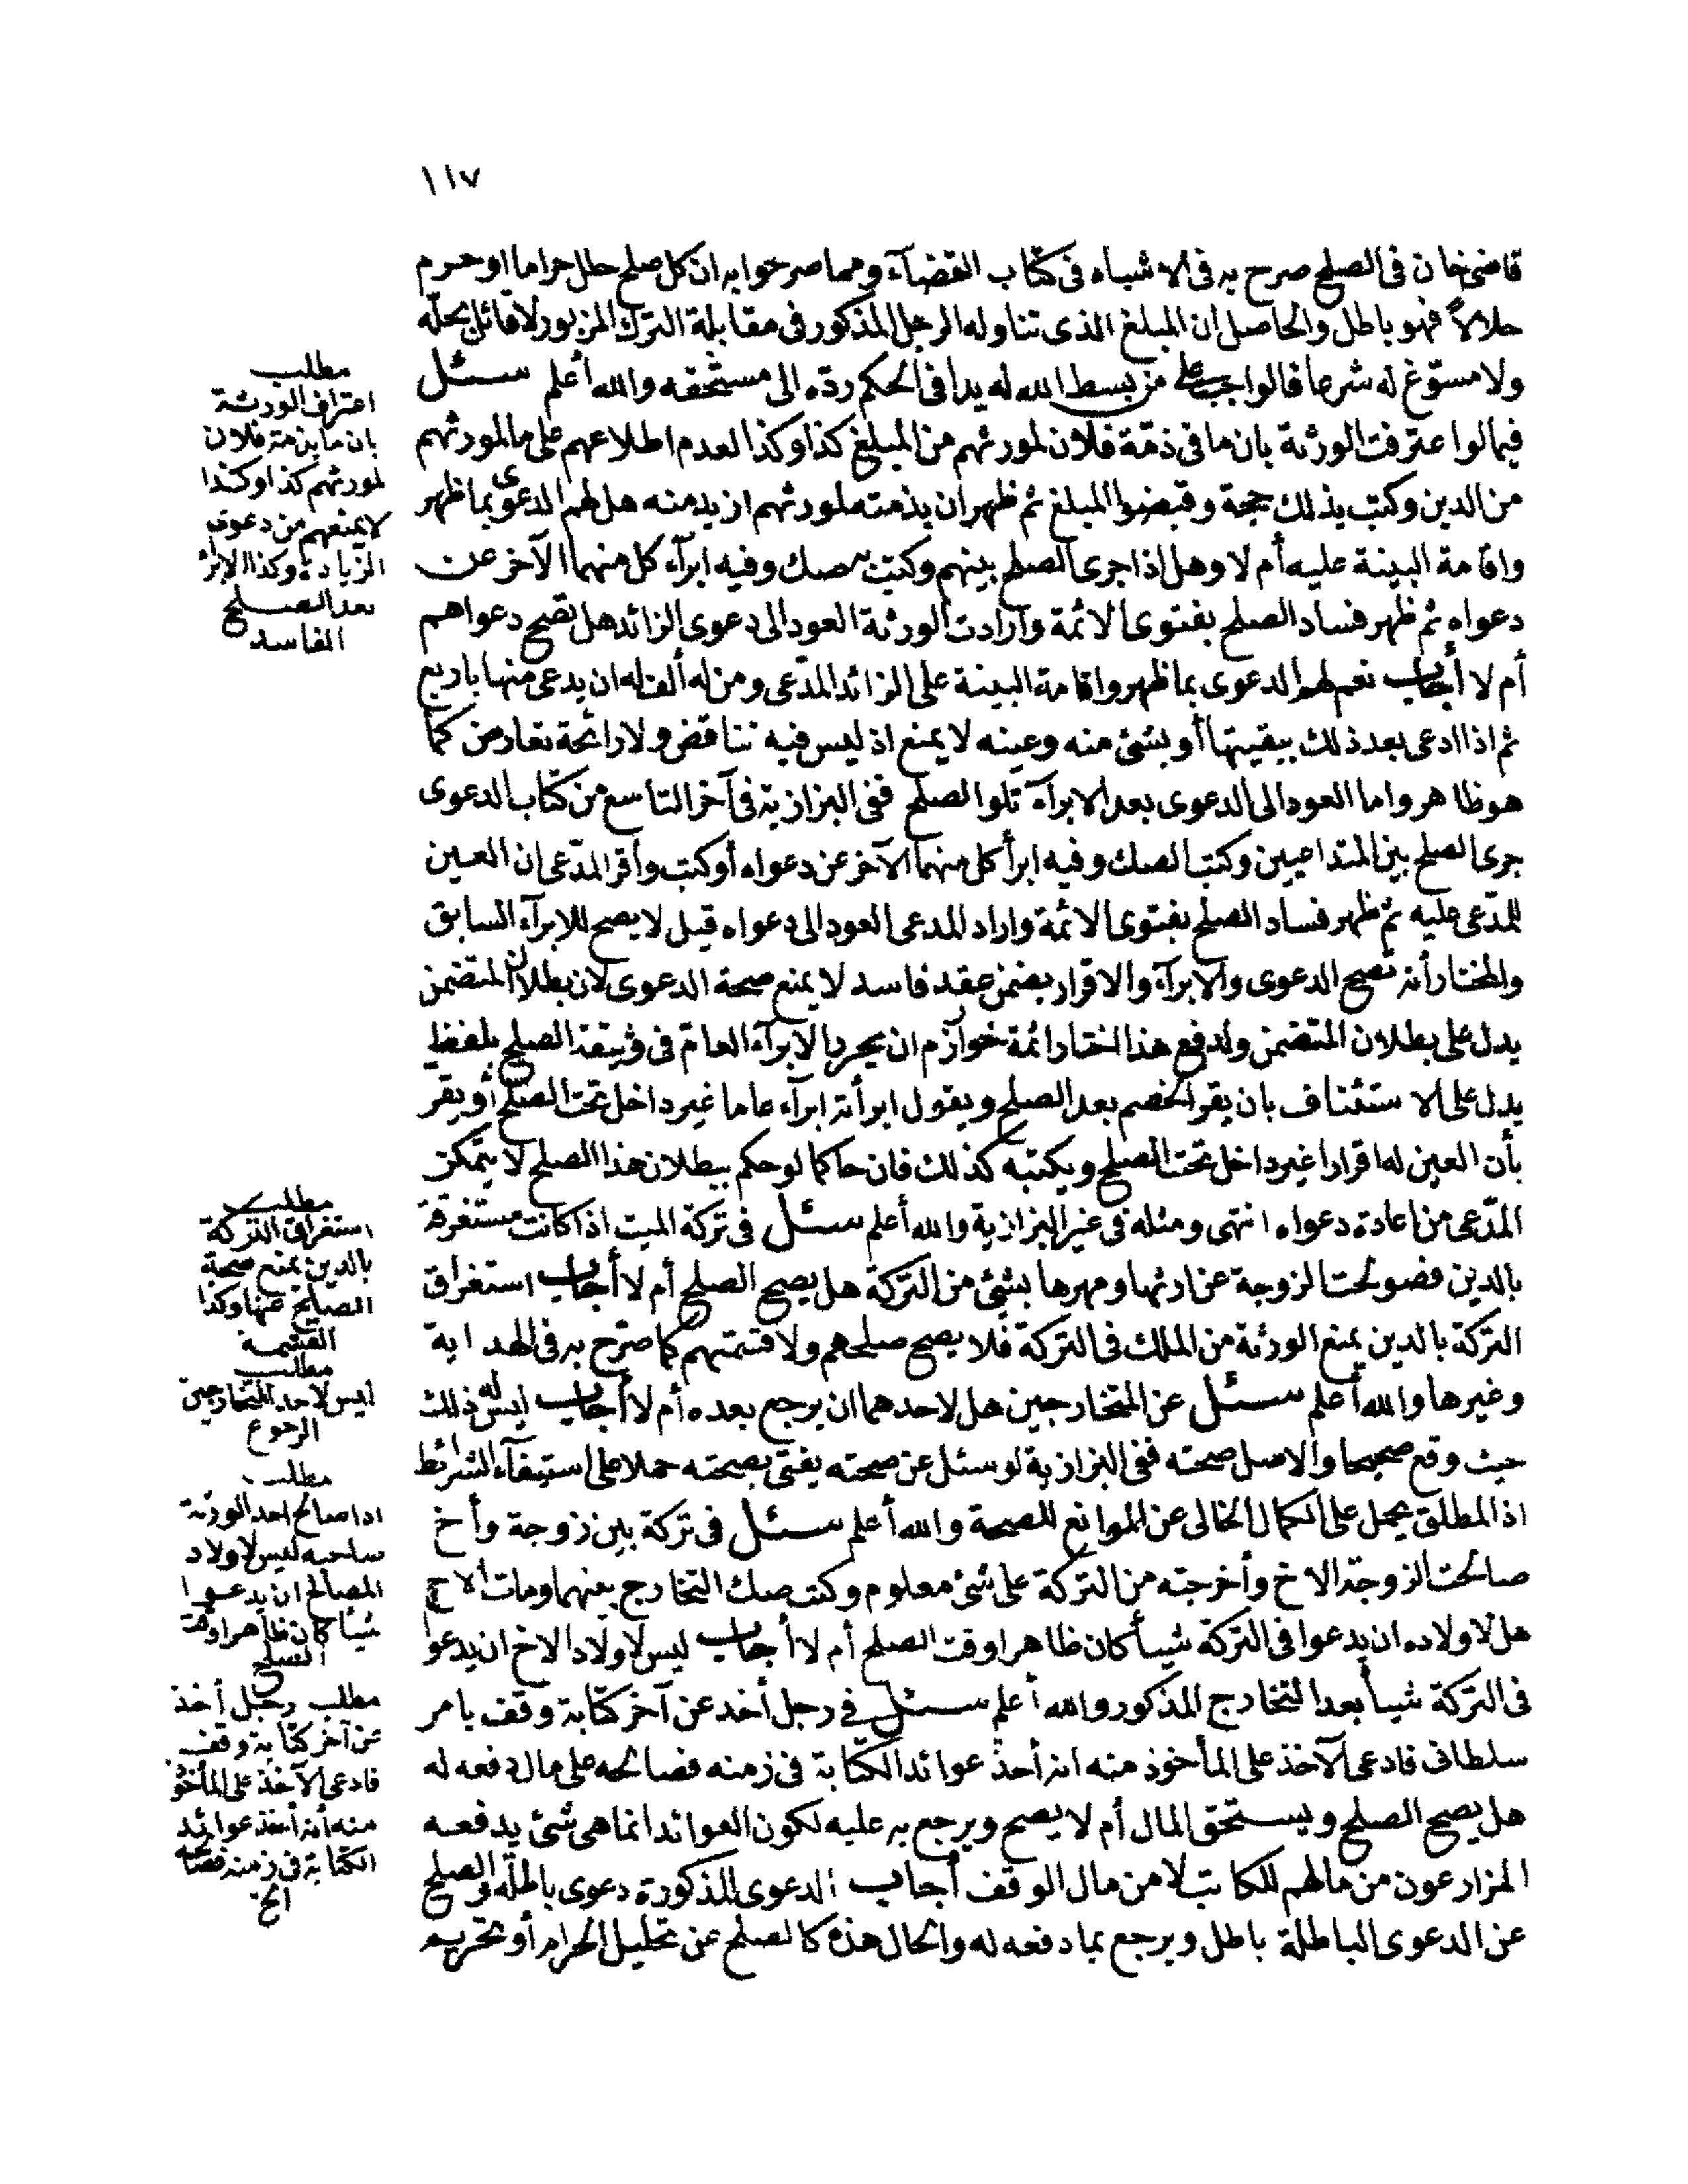 ١١٧
قاضى خان فى الصلح صرح به فى الاشباه فى كتاب القضاء ومما صرحوا به ان كل صلح حلل حراما او حرم
حلالاً فهو باطل والحاصل ان المبلغ الذى تناوله الرجل المذكور فى مقابلة الترك المزبور لا قائل بحلّه
ولا مسوّغ له شرعا فالواجب على من بسط الله له يدا فى الحكم ردّه الى مستحقه والله أعلم سئل
فيما لو اعترفت الورثة بان ما فى ذمّة فلان لمورثهم من المبلغ كذا وكذا لعدم اطلاعهم على ما لمورثهم
من الدين وكتب بذلك حجة وقبضوا المبلغ ثم ظهر ان بذمته لمورثهم ازيد منه هل لهم الدعوى بما ظهر
واقامة البينة عليه أم لا وهل اذا جرى الصلح بينهم وكتب صك وفيه ابرآء كل منهما الآخر عن
دعواه ثم ظهر فساد الصلح بفتوى الائمة وارادت الورثة العود الى دعوى الزائد هل تصح دعواهم
أم لا أجاب نعم لهم الدعوى بما ظهر واقامة البينة على الزائد المدّعى ومن له ألف له ان يدعى منها باربع
ثم اذا ادعى بعد ذلك ببقيتها أو بشئ منه وعينه لا يمنع اذ ليس فيه تناقض ولا رائحة تعارض كما
هو ظاهر واما العود الى الدعوى بعد الابرآء تلو الصلح ففى البزازية فى آخر التاسع من كتاب الدعوى
جرى الصلح بين المتداعيين وكتب الصك وفيه ابرأ كل منهما الآخر عن دعواه أو كتب وأقر المدّعى ان العين
للمدّعى عليه ثم ظهر فساد الصلح بفتوى الائمة واراد المدعى العود الى دعواه قيل لا يصح للابرآء السابق
والمختار أنه تصح الدعوى والابرآء والاقرار بضمن عقد فاسد لا يمنع صحة الدعوى لان بطلان المتضمن
يدل على بطلان المتضمن ولدفع هذا اختار ائمة خوارزم ان يحرر الابرآء العام فى وثيقة الصلح بلفظ
يدل على الاستئناف بان يقر الخصم بعد الصلح ويقول ابرأته ابرآء عاما غير داخل تحت الصلح أو يقر
بأن العين له اقرارا غير داخل تحت الصلح ويكتبه كذلك فان حاكما لو حكم ببطلان هذا الصلح لا يتمكن
المدّعى من اعادة دعواه انتهى ومثله فى غير البزازية والله أعلم سئل فى تركة الميت اذا كانت مستغرقة
بالدين فصولحت الزوجة عن ارثها ومهرها بشئ من التركة هل يصح الصلح أم لا أجاب استغراق
التركة بالدين يمنع الورثة من الملك فى التركة فلا يصح صلحهم ولا قسمتهم كما صرّح به فى الهداية
وغيرها والله أعلم سئل عن المتخارجين هل لاحدهما ان يرجع بعده أم لا أجاب ليس له ذلك
حيث وقع صحيحا والاصل صحته ففى البزازية لو سئل عن صحته يفتى بصحته حملا على استيفآء الشرائط
اذ المطلق يحمل على الكمال الخالى عن الموانع للصحة والله أعلم سئل فى تركة بين زوجة وأخ
صالحت الزوجة الاخ وأخرجته من التركة على شئ معلوم وكتب صك التخارج بينهما ومات الاخ
هل لاولاده ان يدعوا فى التركة شيأ كان ظاهرا وقت الصلح أم لا أجاب ليس لاولاد الاخ ان يدعوا
فى التركة شيأ بعد التخارج المذكور والله أعلم سئل فى رجل أخذ عن آخر كتابة وقف بامر
سلطانى فادعى الآخذ على المأخوذ منه انه أخذ عوائد الكتابة فى زمنه فصالحه على مال دفعه له
هل يصح الصلح ويستحق المال أم لا يصح ويرجع به عليه لكون العوائد انما هى شئ يدفعه
المزارعون من مالهم للكاتب لا من مال الوقف أجاب الدعوى المذكورة دعوى باطلة والصلح
عن الدعوى الباطلة باطل ويرجع بما دفعه له والحال هذه كالصلح عن تحليل الحرام أو تحريم
مطلب
اعتراف الورثة
بان ما بذمة فلان
لمورثهم كذا وكذا
لا يمنعهم من دعوى
الزيادة وكذا الابرآء
بعد الصلح
الفاسد
مطلب
استغراق التركة
بالدين يمنع صحة
الصلح عنها وكذا
القسمة
مطلب
ليس لاحد المتخارجين
الرجوع
مطلب
اذا صالح احد الورثة
صاحبه ليس لاولاد
المصالح ان يدعوا
شيأ كان ظاهرا وقت
الصلح
مطلب رجل أخذ
عن آخر كتابة وقف
فادعى الآخذ على المأخوذ
منه أنه أخذ عوائد
الكتابة فى زمنه فصالحه
الخ